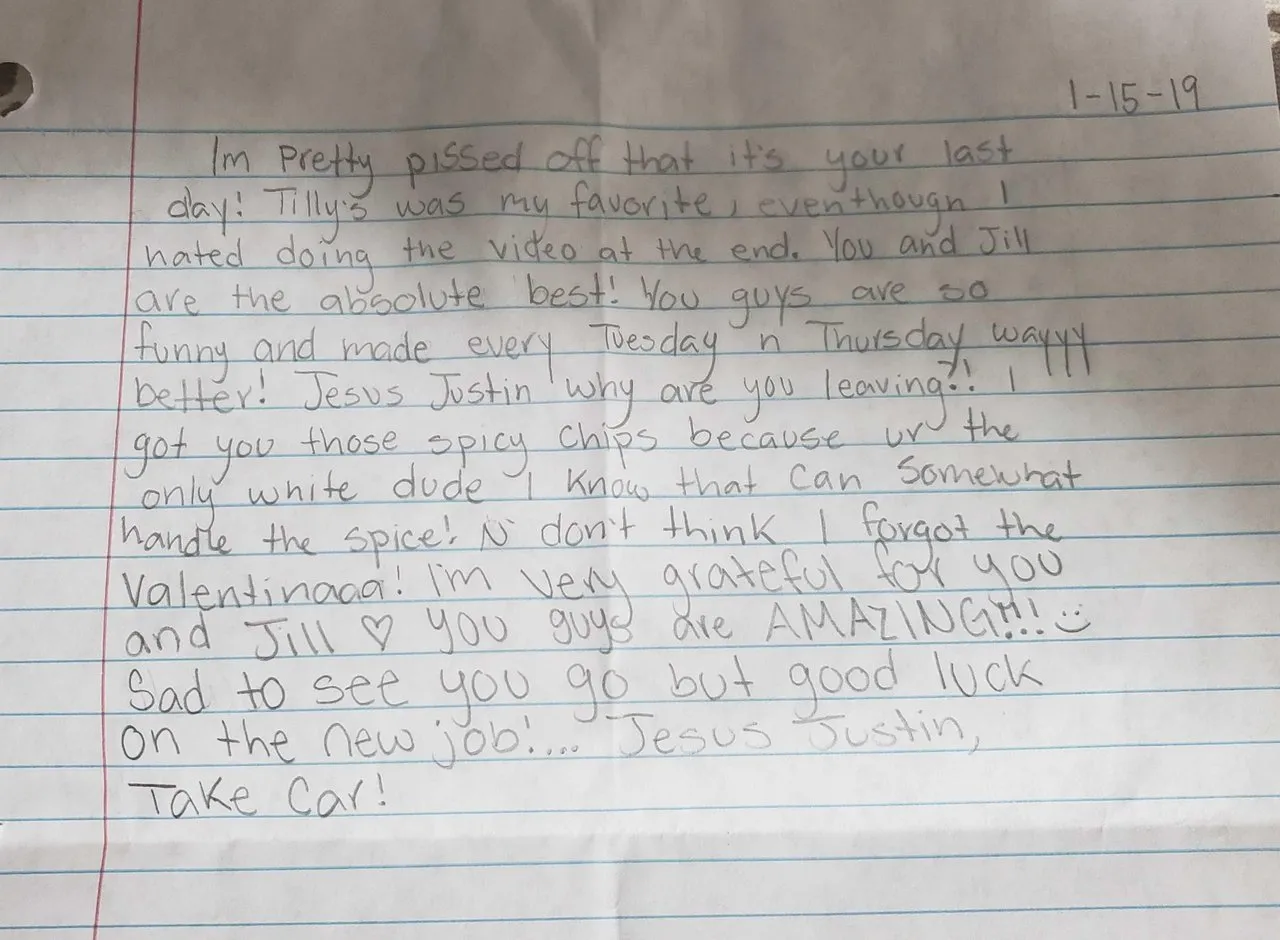 1-15-19
Im Pretty pissed off that it's your last
day! Tilly's was my favorite, eventhough I
hated doing the video at the end. You and Jill
are the absolute best! You guys are so
funny and made every Tuesday n Thursday wayyy
better! Jesus Justin why are you leaving?! I
got you those spicy chips because ur the
only white dude I know that can somewhat
handle the spice! N don't think I forgot the
Valentinaaa! I'm very grateful for you
and Jill ♡ you guys are AMAZING!!! :)
Sad to see you go but good luck
on the new job!.... Jesus Justin,
Take Car!